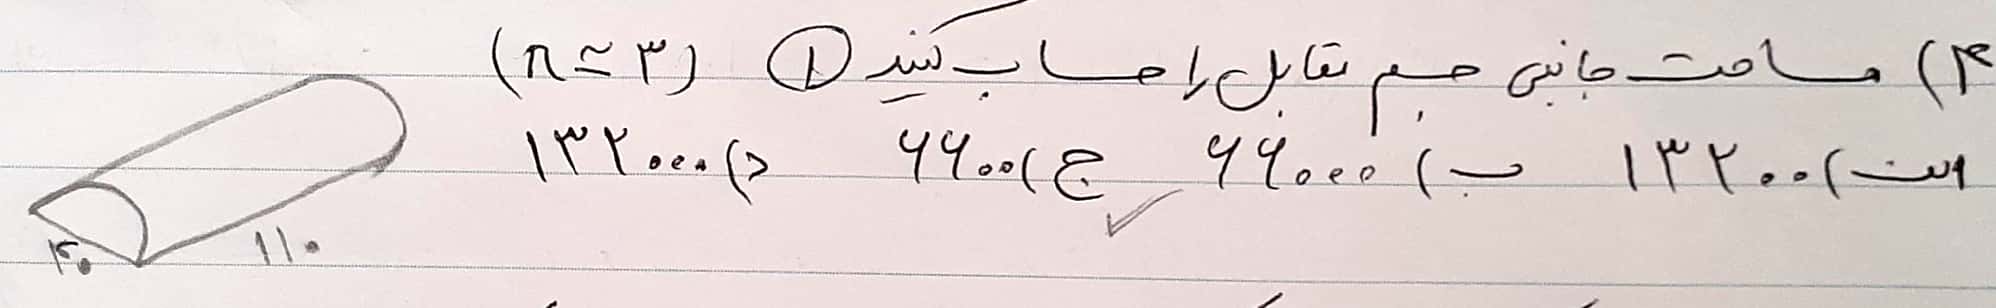 ۴) مساحت جانبی جسم مقابل را حساب کنید ۱ (π ≃ ۳)
الف) ۱۳۲۰۰ ب) ۶۶۰۰۰ ج) ۶۶۰۰ د) ۱۳۲۰۰۰
۴۰ ۱۱۰